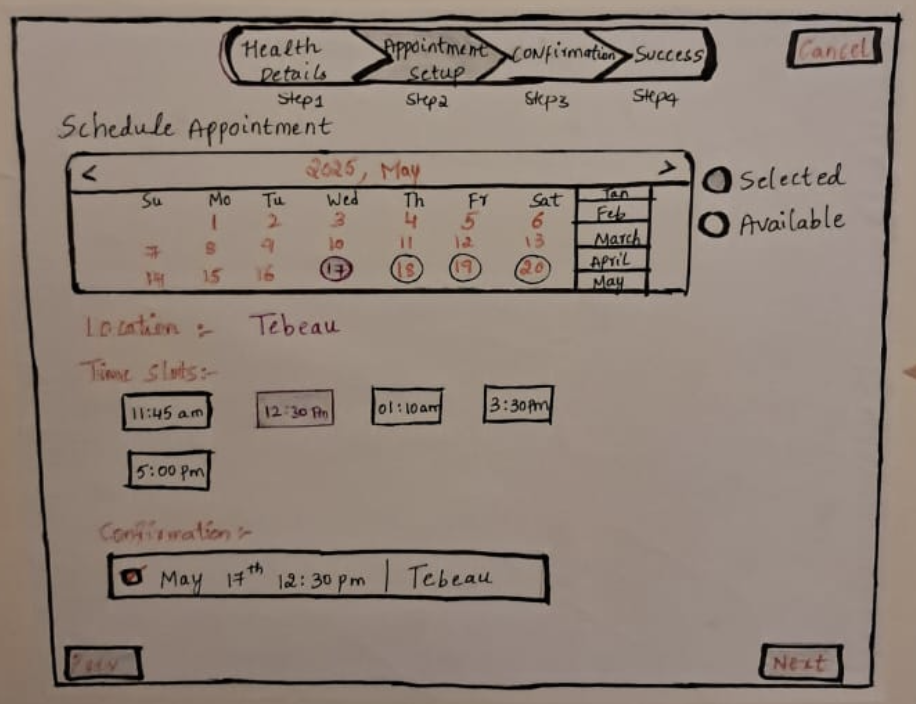 Health Details
Appointment Setup
Confirmation
Success
Cancel
Step1
Step2
Step3
Step4
Schedule Appointment
< 2025, May >
Su Mo Tu Wed Th Fr Sat
1 2 3 4 5 6
7 8 9 10 11 12 13
14 15 16 17 18 19 20
Jan
Feb
March
April
May
Selected
Available
Location :- Tebeau
Time Slots:-
11:45 am
12:30 Pm
01:10am
3:30Pm
5:00 Pm
Confirmation :-
May 17th 12:30 pm | Tebeau
Prev
Next